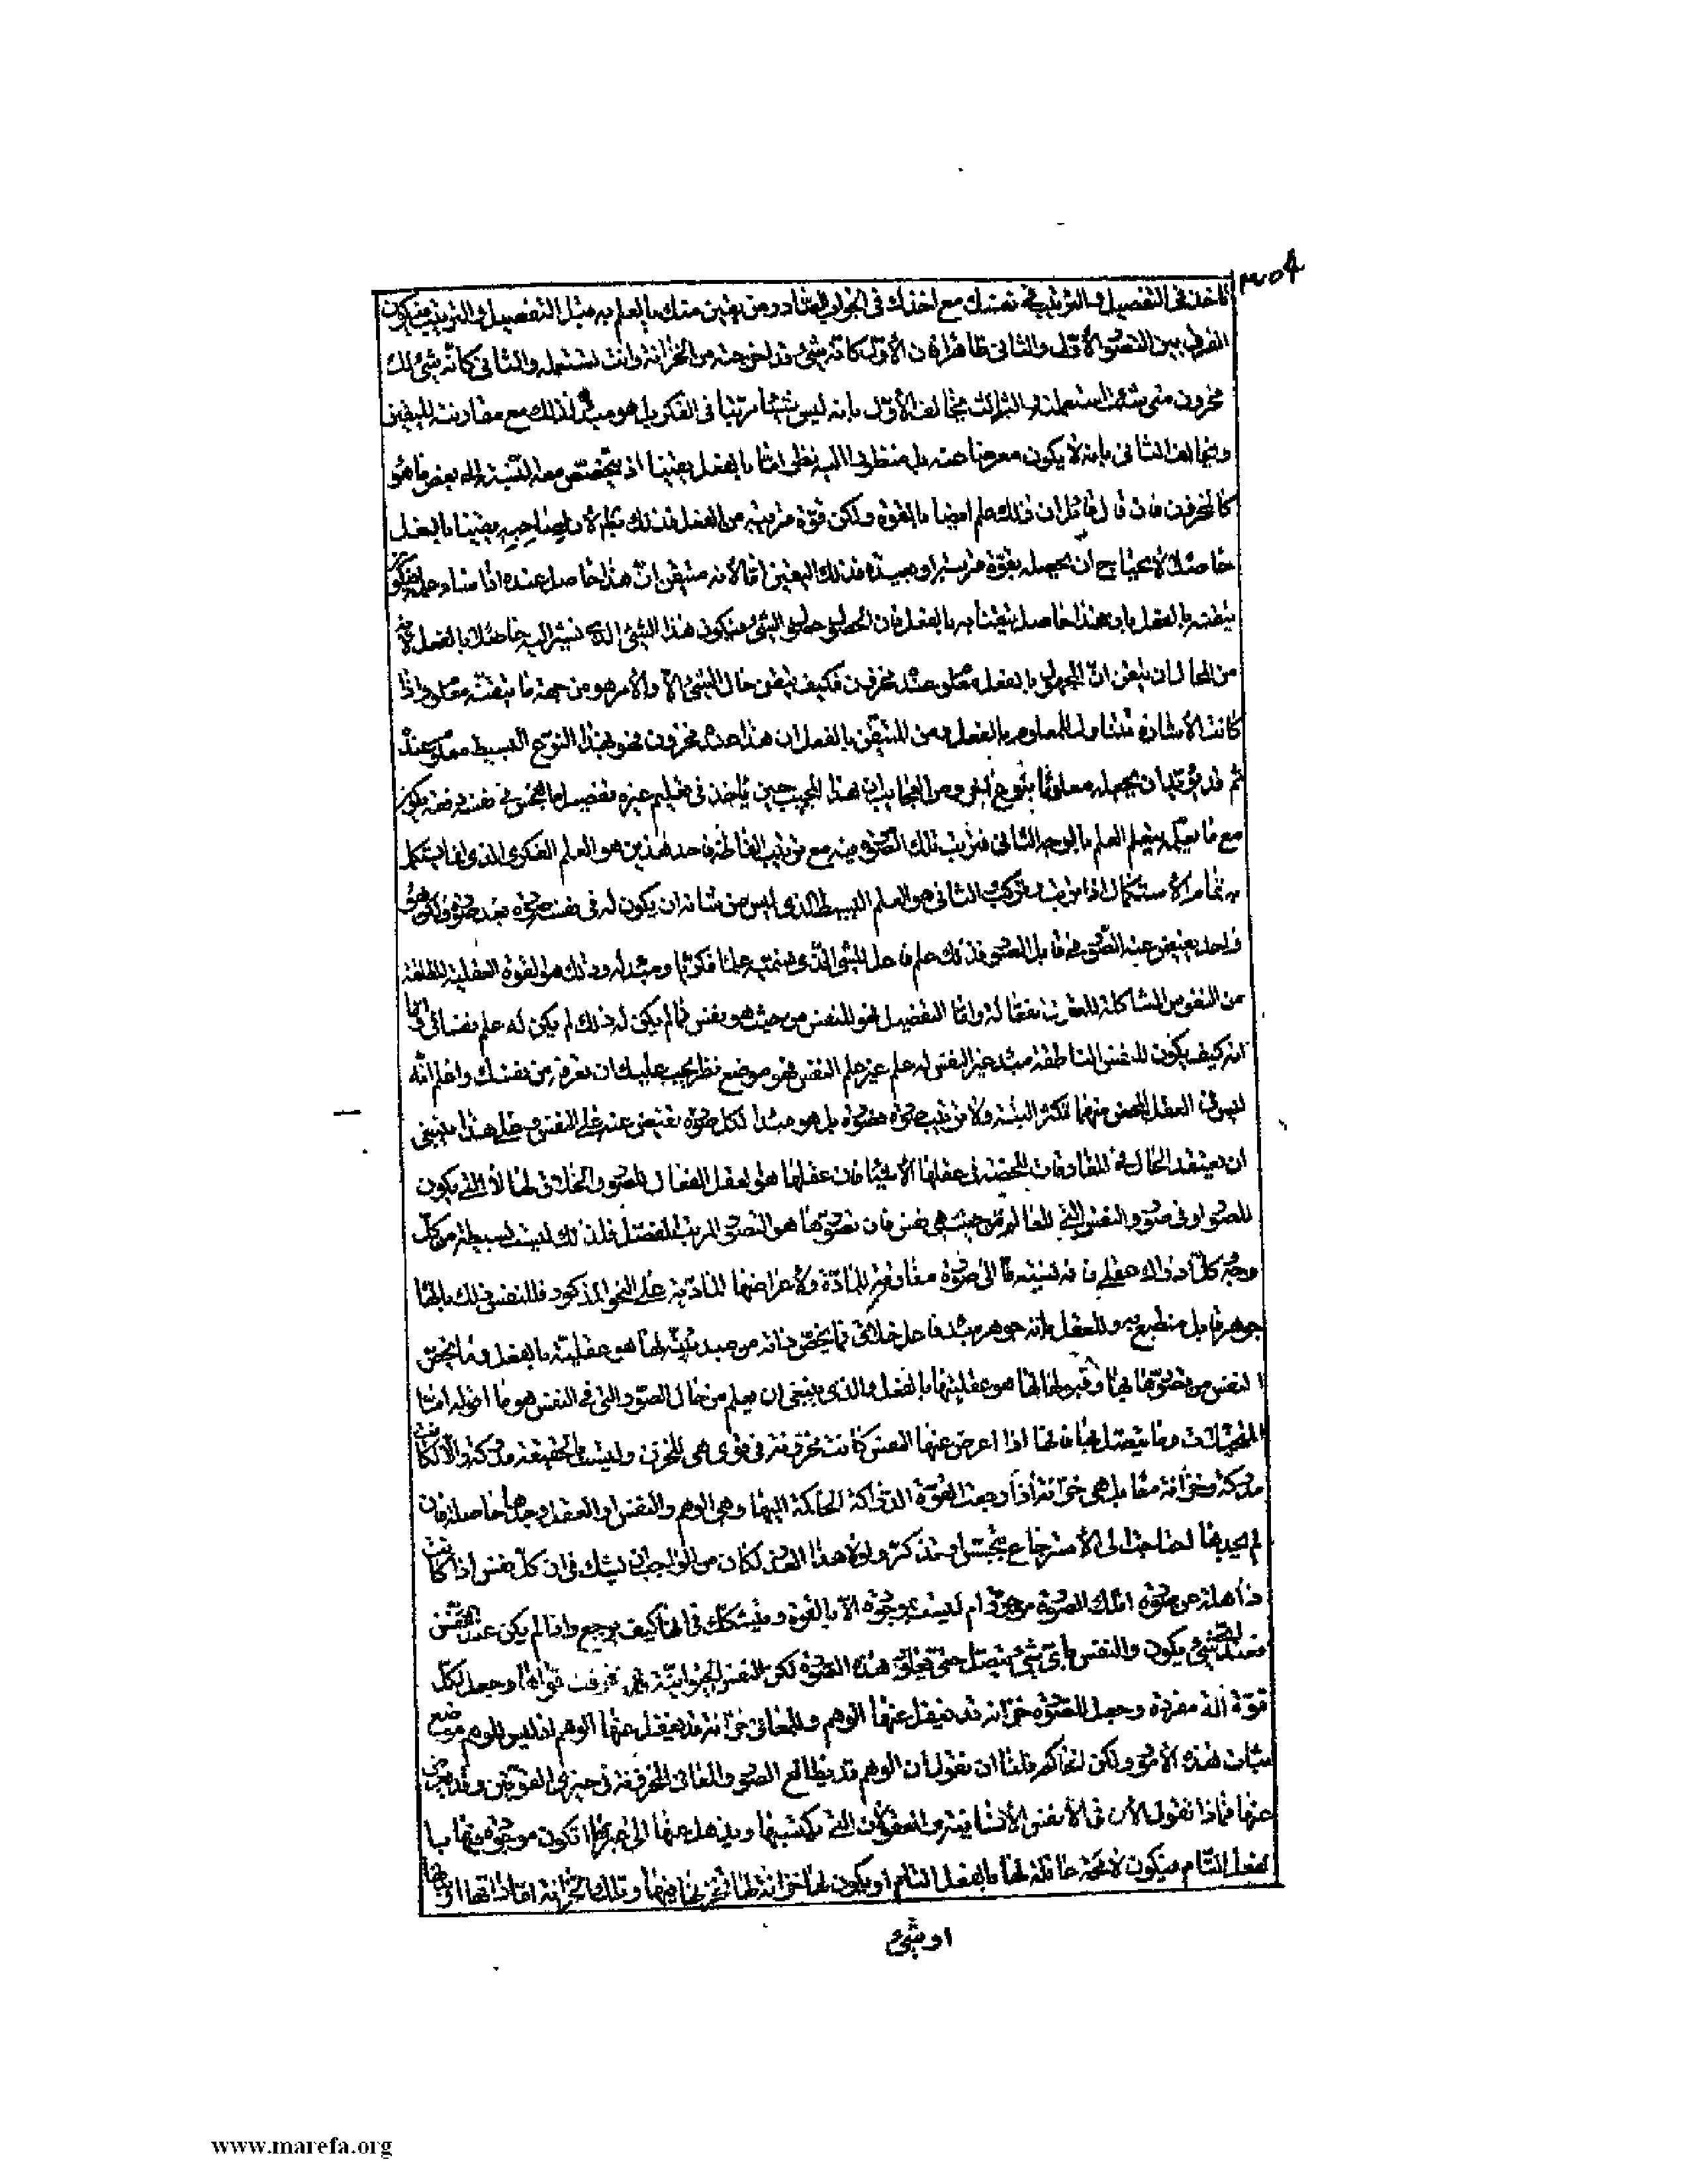 ٣٥٩
تاخذ فى التفصيل والترتيب فى نفسك مع اخذك فى الجواب الصادر من يقين منك بالعلم به قبل التفصيل والترتيب فيكون
الفرق بين التصور الأول والثانى ظاهرا فان الأول كانه شئ قد اخرجته من الخزانة وانت تستعمله والثانى كانه شئ لك
مخزون متى شئت استعملته والثالث يخالف الأول بانه ليس شيئا مرتبا فى الفكر بل هو مبدأ لذلك مع مقارنته لليقين
ويخالف الثانى بانه لا يكون معرضا عنه بل منظورا اليه نظرا ما بالفعل يقينا اذ يتخصص معه النسبة الى بعض ما هو
كالمخزون فان قال قائل ان ذلك علم ايضا بالقوة ولكن قوة قريبة من الفعل فذلك باطل لان لصاحبه يقينا بالفعل
حاصلا لا يحتاج ان يحصله بقوة قريبة او بعيدة فذلك اليقين اما لانه متيقن ان هذا حاصل عنده اذا شاء علمه فيكون
تيقنه بالفعل بان هذا حاصل تيقنا به بالفعل فان الحصول حصول لشئ فيكون هذا الشئ الذى نشير اليه حاصلا بالفعل لانه
من المحال ان يتيقن ان المجهول بالفعل معلوم عنده مخزون فكيف يتيقن حال الشئ الا والأمر هو من جهة ما يتيقنه معلوم واذا
كانت الأشارة تتناول المعلوم بالفعل ومن المتيقن بالفعل ان هذا عنده مخزون فهو بهذا النوع البسيط معلوم عنده
ثم قد يريد ان يجعله معلوما بنوع اخر ومن العجايب ان هذا المجيب حين ياخذ فى تعليم غيره تفصيل ما هجس فى نفسه دفعة يكون
مع ما يعلمه يتعلم العلم بالوجه الثانى فترتب تلك الصورة فيه مع ترتيب الفاظه فاحد هذين هو العلم الفكرى الذى انما يستكمل
به تمام الأستكمال اذا ترتب وتركب والثانى هو العلم البسيط الذى ليس من شانه ان يكون له فى نفسه صورة بعد صورة ولكن هو
واحد يفيض عنه الصور فى قابل الصور فذلك علم فاعل للشئ الذى نسميه علما فكريا ومبدأ له وذلك هو للقوة العقلية المطلقة
من النفوس المشاكلة للعقول الفعالة واما التفصيل فهو للنفس من حيث هو نفس فما لم يكن له ذلك لم يكن له علم نفسانى واما
انه كيف يكون للنفس الناطقة مبدء غير النفس له علم غير علم النفس فهو موضع نظر يجب عليك ان تعرفه من نفسك واعلم انه
ليس فى العقل المحض منهما تكثر البتة ولا ترتيب صورة فصورة بل هو مبدأ لكل صورة يفيض عنه على النفس وعلى هذا ينبغى
ان يعتقد الحال فى المفارقات المحضة فى عقلها الأشياء فان عقلها هو العقل الفعال للصور والخلاق لها لا الذى يكون
للصور او فى صور والنفس التى للعالم من حيث هى نفس فان تصورها هو التصور المرتب المفصل فلذلك ليست بسيطة من كل
وجه وكل ادراك عقلى فانه نسبة ما الى صورة مفارقة للمادة ولأعراضها المادية على النحو المذكور فللنفس ذلك بانها
جوهر قابل منطبع به وللعقل بانه جوهر مبدء فاعل خلاق فما يخص ذاته من مبدئيته لها هو عقليته بالفعل وما يخص
النفس من تصورها بها وقبولها لها هو عقليتها بالفعل والذى ينبغى ان يعلم من حال الصور التى فى النفس هو ما اقوله اما
المتخيلات وما يتصل بها فانها اذا اعرض عنها النفس كانت مخزونة فى قوى هى للخزن وليست بالحقيقة مدركة والا لكانت
مدركة وخزانة معا بل هى خزانة اذا رجعت القوة الدراكة الحاكمة اليها وهى الوهم والنفس او العقل وجدها حاصلة فان
لم يجدها احتاجت الى الأسترجاع بتحسس او تذكر ولولا هذا العذر لكان من الواجب ان يشك فى ان كل نفس اذا كانت
ذاهلة عن صورة اتلك الصورة موجودة ام ليست بموجودة الا بالقوة ويتشكك فى انها كيف يرجع واذا لم يكن عند النفس
فعند اى شئ يكون والنفس باى شئ يتصل حتى تعاود هذه الصورة لكن النفس الحيوانية قد فرقت قواها وجعل لكل
قوة الة مفردة وجعل للصور خزانة قد يغفل عنها الوهم وللمعانى خزانة قد يغفل عنها الوهم اذ ليس الوهم موضع
ثبات لهذه الأمور ولكن الحاكم فلنا ان نقول ان الوهم قد يطالع الصور والمعانى المخزونة فى حيزى القوتين وقد يعرض
عنها فماذا نقول الأن فى الأنفس الأنسانية والمعقولات التى تكتسبها ويذهل عنها الى غيرها اتكون موجودة فيها با
لفعل التام فيكون لا محة عاقلة لها بالفعل التام او يكون لها خزانة لها تخزنها فيها وتلك الخزانة اما ذاتها او بدنها
او شئ
www.marefa.org